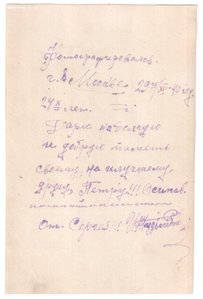 Фотографировался
г. Москва 29/XII-40 год
24х лет.
Дарю на долгую
и добрую память
своему, наилучшему,
другу, Петру!!!
От. Сергея!!!